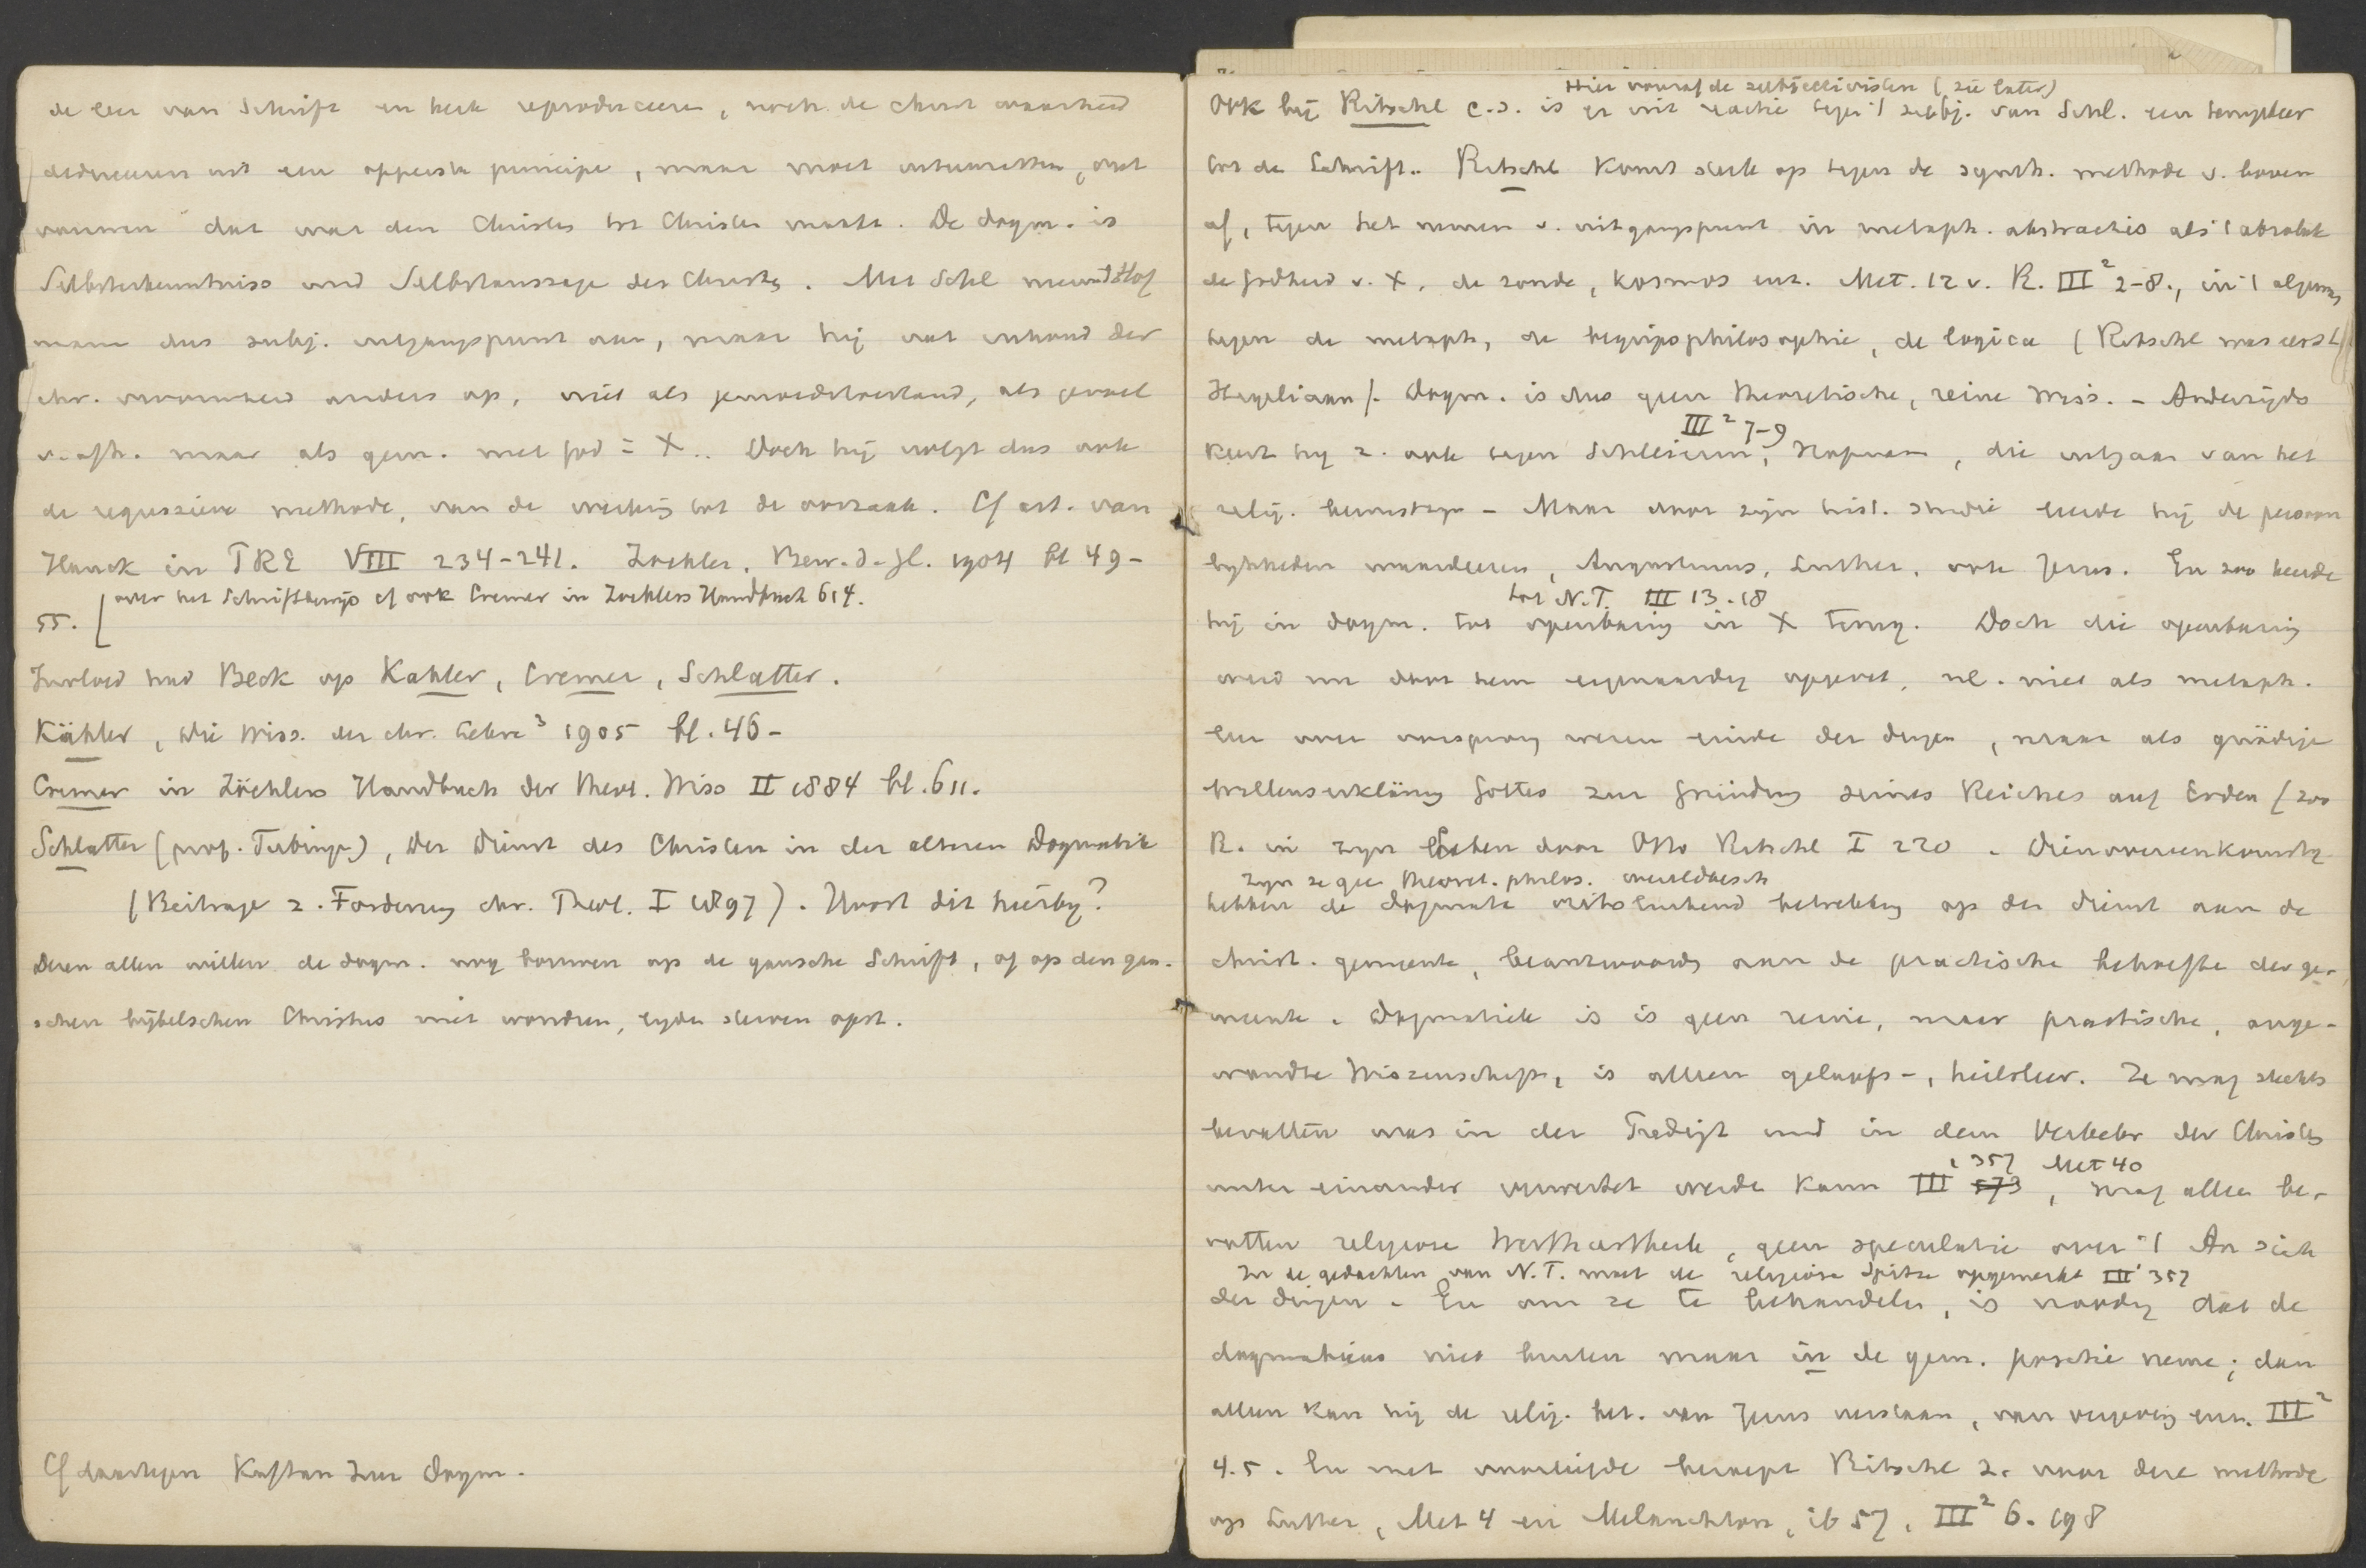 de leer van Schrift en kerk reproduceeren, noch de christ. waarheid
deduceeren uit een opperste principe, maar moet uiteenzetten, ont
vouwen dat wat den Christen tot Christen maakt. De dogm. is
Selbsterkenntniss und Selbstaussage des Christen. Met Schl neemt Hof
mann dus subj. uitgangspunt aan, maar hij vat inhoud der
chr. vroomheid anders op, niet als gemoedstoestand, als gevoel
v. afh. maar als gem. met God = X.. Doch hij volgt dus ook
de regressieve methode, van de werking tot de oorzaak. Cf art. van
Hauck in PRE VIII 234-241. Zockler, Bew. d. Gl. 1904 bl 49-
over het Schriftbewijs cf ook Cremer in Zocklers Handbuch 614.
55.
Invloed had Beck op Kahler, Cremer, Schlatter.
Kähler, Die Wiss. der chr. Lehre³ 1905 bl. 46-
Cremer in Zöcklers Handbuch der theol. Wiss II 1884 bl. 611.
Schlatter (prof. Tubinge), Der Dienst des Christen in der alteren Dogmatik
(Beitrage z. Forderung chr. Theol. I 1897). Hoort dit hierbij?
Dezen allen willen de dogm. nog bouwen op de gansche Schrift, of op den gan-
schen bijbelschen Christus met wondren, lijden sterven opst.
Cf daartegen Kaftan Zur Dogm.
Hier vooraf de subjectivisten (zie later)
Ook bij Ritschl c.s. is er uit reactie tegen 't subj. van Schl. een terugkeer
tot de Schrift. Ritschl komt sterk op tegen de synth. methode v. boven
af, tegen het nemen v. uitgangspunt in metaph. abstracties als 't absolute
de godheid v. X, de zonde, kosmos enz. Met. 12 v. R. III² 2-8., in 't algemeen
tegen de metaph, de begripsphilosophie, de logica (Ritschl was eerst
Hegeliaan). Dogm. is dus geen theoretische, reine Wiss. - Anderzijds
III² 7-9
keert hij z. ook tegen Schleierm., Hofmann, die uitgaan van het
relig. bewustzijn - Maar door zijn hist. studie leerde hij de persoon
lijkheden waardeeren, Augustinus, Luther, ook Jezus. En zoo keerde
tot N.T. III 13-18
hij in dogm. tot openbaring in X terug. Doch die openbaring
werd nu door hem eigenaardig opgevat, nl. niet als metaph.
leer over oorsprong wezen einde der dingen, maar als gnädige
Willenserklärung Gottes zur Gründung seines Reiches auf Erden (zoo
R. in zijn Leben door Otto Ritschl I 220. Dienovereenkomstig
zijn ze geen theoret. philos. wereldbesch
hebben de dogmata uitsluitend betrekking op den dienst aan de
christ. gemeente, beantwoordg aan de practische behoefte der ge-
meente. Dogmatiek is is geen reine, maar practische, ange-
wandte Wissenschaft, is alleen geloofs-, heilsleer. Ze mag slechts
bevatten was in der Predigt und in dem Verkehr der Christen
357 Met 40
unter einander verwertet werde kann III 573, mag alleen be-
vatten religieuse Werthurtheile, geen speculatie over 't An sich
In de gedachten van N.T. moet de religieuse Spitze opgemerkt III 357
der dingen. En om ze te behandelen, is noodig dat de
dogmaticus niet buiten maar in de gem. positie neme; dan
alleen kan hij de relig. bet. van Jezus verstaan, van vergeving enz. III²
4.5. En met voorliefde beroept Ritschl z. voor deze methode
op Luther, Met 4 en Melanchton, ib 57, III² 6. 198